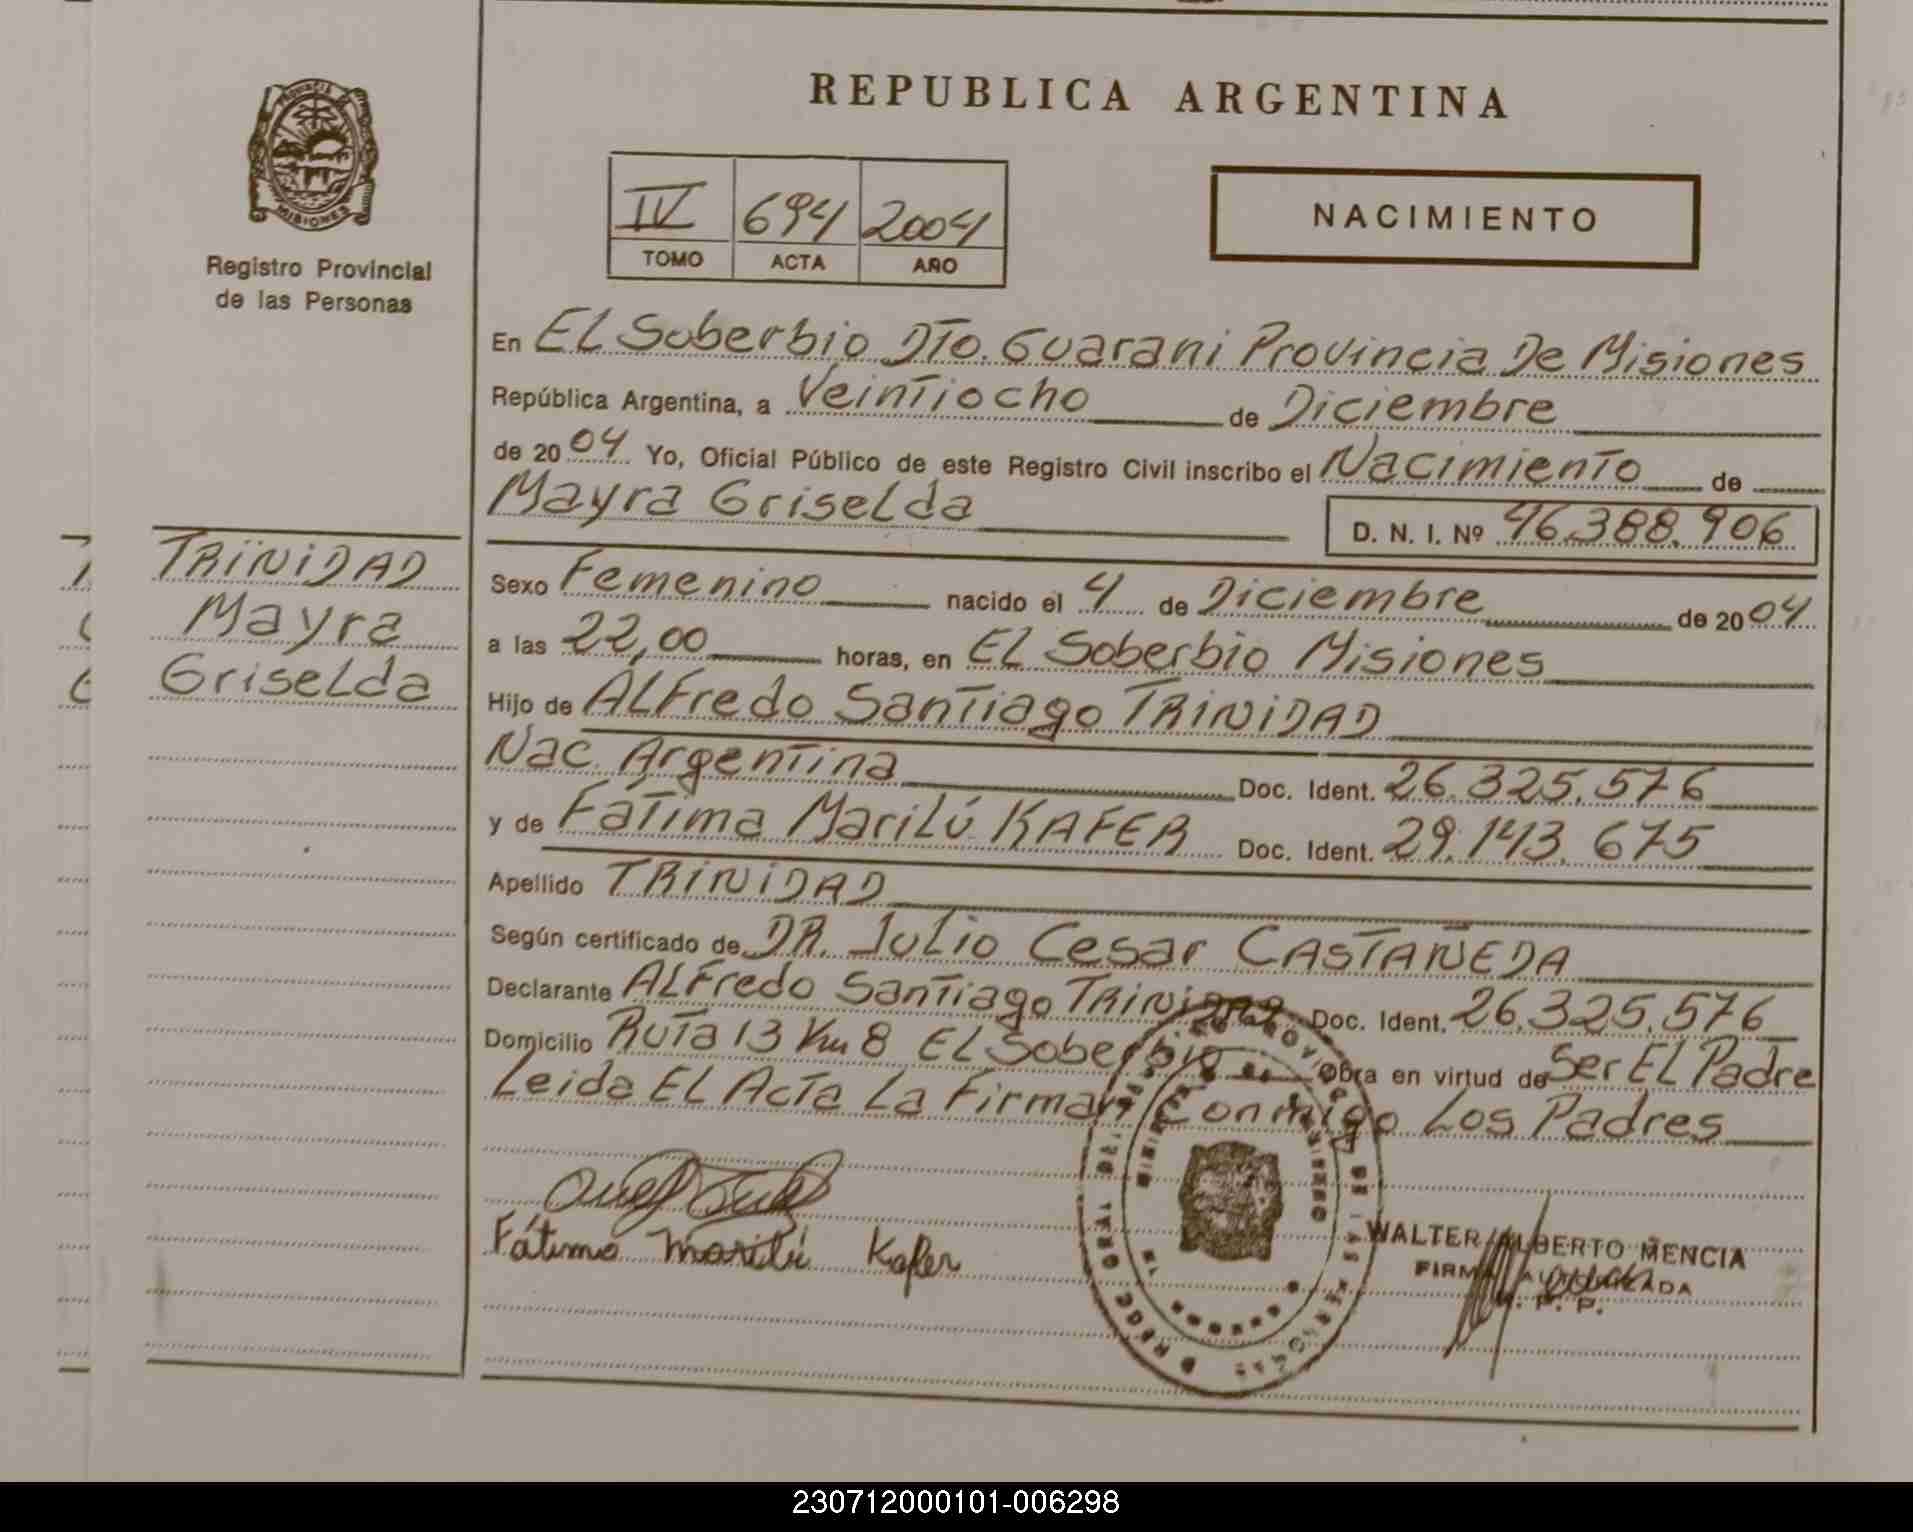 REPUBLICA ARGENTINA
PROVINCIA DE MISIONES
Registro Provincial
de las Personas
IV 694 2004
TOMO ACTA AÑO
NACIMIENTO
En EL Soberbio DTo. Guarani Provincia De Misiones
República Argentina, a Veintiocho de Diciembre
de 2004 Yo, Oficial Público de este Registro Civil inscribo el Nacimiento de
Mayra Griselda D. N. I. Nº 46.388.906
TRiNiDAD
Mayra
Griselda
Sexo Femenino nacido el 4 de Diciembre de 2004
a las 22,00 horas, en EL Soberbio Misiones
Hijo de ALFredo Santiago TRiNiDAD
Nac. Argentina Doc. Ident. 26.325.576
y de Fátima Marilú KAFER Doc. Ident. 29.143.675
Apellido TRiNiDAD
Según certificado de DR. Julio Cesar CASTAÑEDA
Declarante ALFredo Santiago TRiNiDAD Doc. Ident. 26.325.576
Domicilio Ruta 13 Km 8 EL Soberbio Obra en virtud de Ser EL Padre
Leida EL Acta La Firman Conmigo Los Padres
Fátima Marilú Kafer
WALTER ALBERTO MENCIA
FIRMA AUTORIZADA
R. P. P.
230712000101-006298